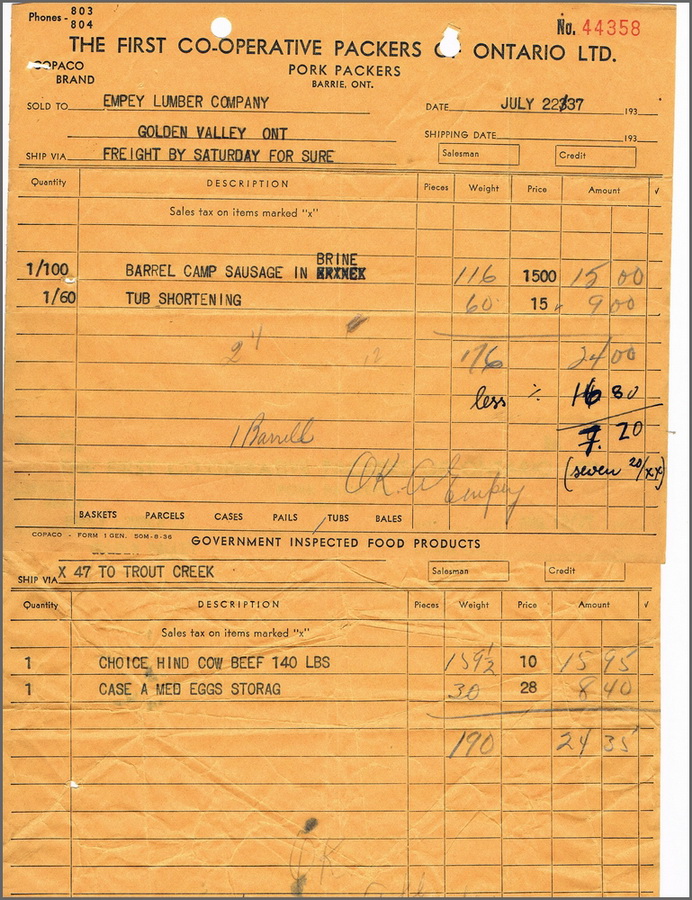 Phones - 803
804
No. 44358
THE FIRST CO-OPERATIVE PACKERS OF ONTARIO LTD.
COPACO
BRAND
PORK PACKERS
BARRIE, ONT.
SOLD TO EMPEY LUMBER COMPANY
DATE JULY 22 37 193
GOLDEN VALLEY ONT
SHIPPING DATE 193
SHIP VIA FREIGHT BY SATURDAY FOR SURE
Salesman Credit
Quantity DESCRIPTION Pieces Weight Price Amount √
Sales tax on items marked "x"
BRINE
1/100 BARREL CAMP SAUSAGE IN 116 1500 15 00
1/60 TUB SHORTENING 60 15 9 00
24 12 176 24 00
less % 16 80
1 Barrell 7. 20
(seven 20/xx)
OK. A Empey
BASKETS PARCELS CASES PAILS TUBS BALES
COPACO - FORM 1 GEN. 50M-8-36 GOVERNMENT INSPECTED FOOD PRODUCTS
SHIP VIA X 47 TO TROUT CREEK
Salesman Credit
Quantity DESCRIPTION Pieces Weight Price Amount √
Sales tax on items marked "x"
1 CHOICE HIND COW BEEF 140 LBS 159½ 10 15 95
1 CASE A MED EGGS STORAG 30 28 8 40
190 24 35
OK